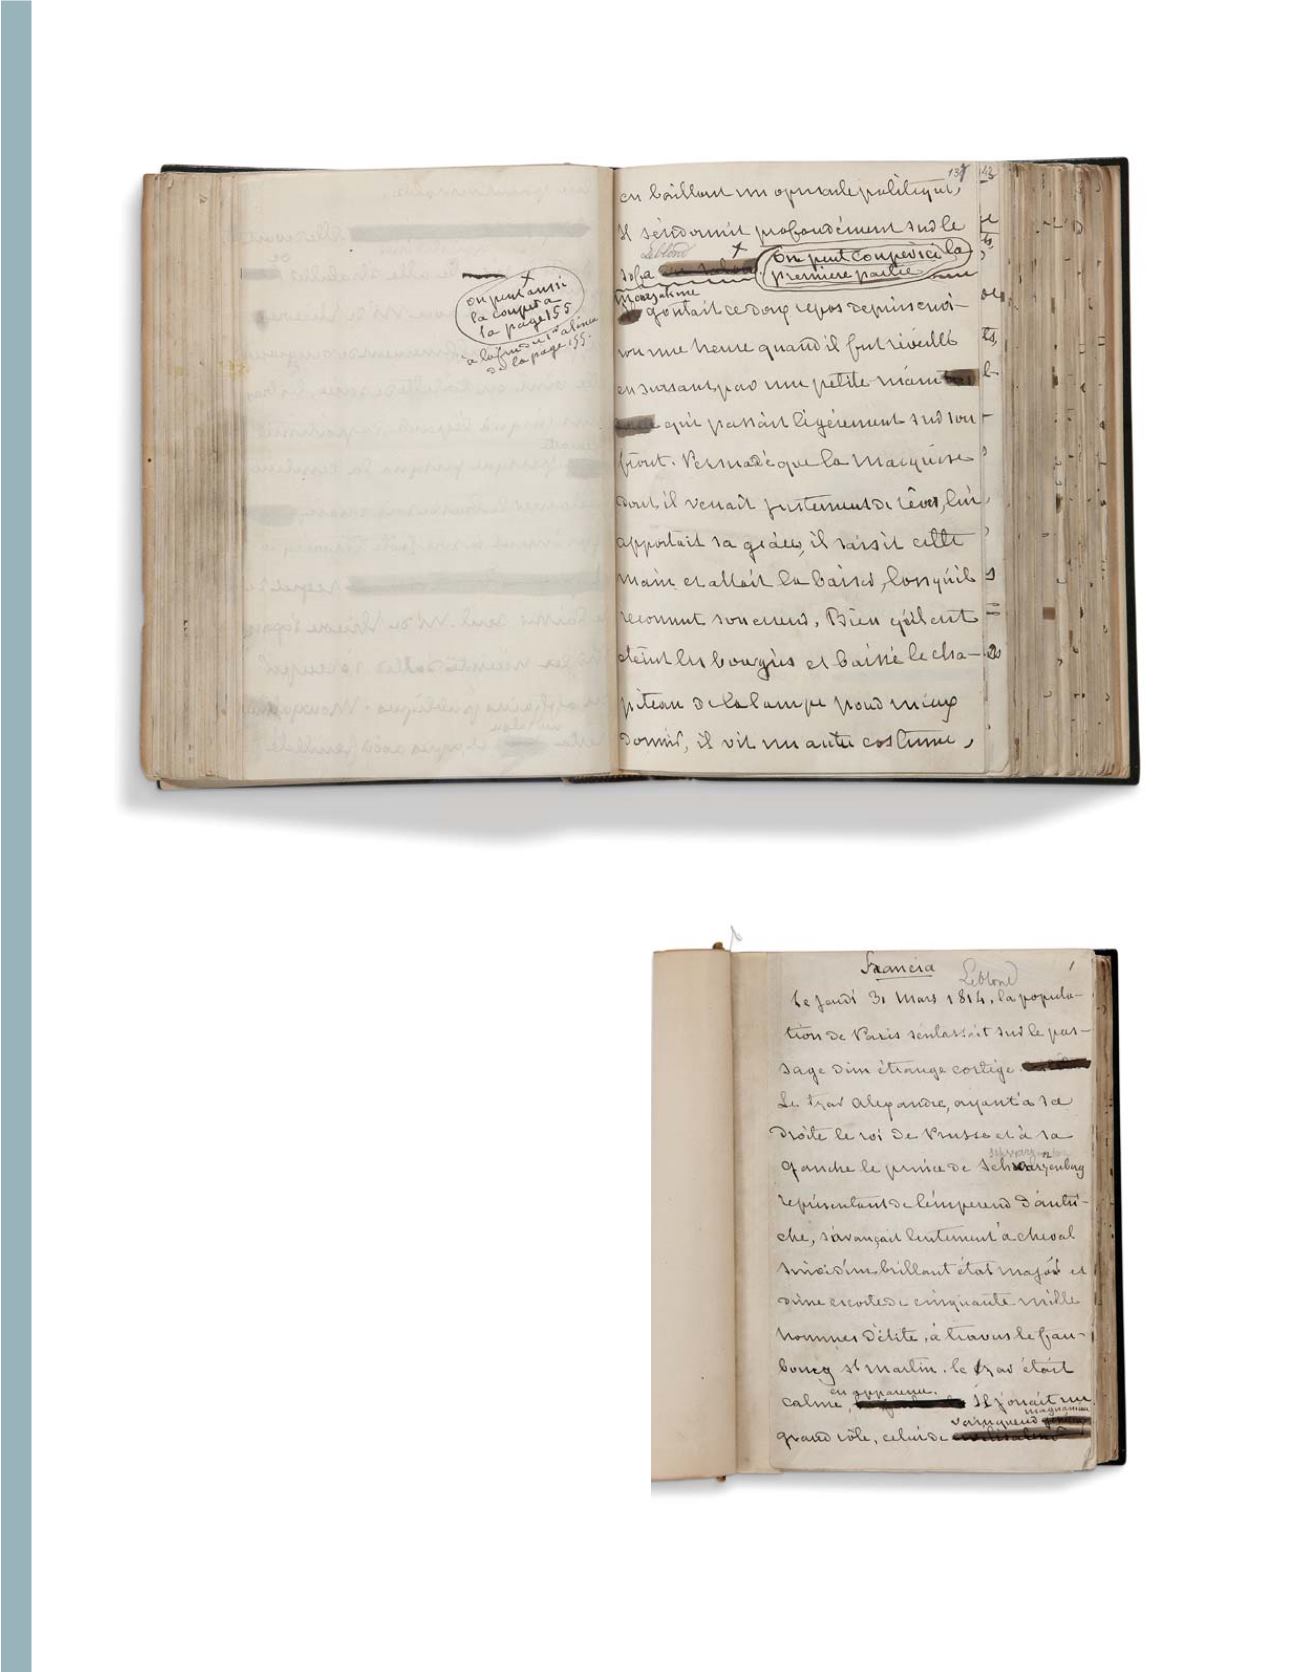 on peut aussi
la couper à
la page 155
à la fin du 1er alinéa
de la page 155.
137
en baillant un opuscule politique,
il s'endormit profondément sur le
Leblond
sofa
on peut couper ici la
première partie
Mourzakine
goûtait ce doux repos depuis envi-
ron une heure quand il fut réveillé
en sursaut par une petite main
qui passait légèrement sur son
front. Persuadé que la marquise
dont il venait justement de rêver, lui
apportait sa grâce, il saisit cette
main et allait la baiser, lorsqu'il
reconnut son erreur. Bien qu'il eut
éteint les bougies et baissé le cha-
piteau de la lampe pour mieux
dormir, il vit un autre costume,
Francia
Leblond
1
Le jeudi 31 Mars 1814, la popula-
tion de Paris s'entassait sur le pas-
sage d'un étrange cortège.
Le tzar Alexandre, ayant à sa
droite le roi de Prusse et à sa
gauche le prince de Schwarzenberg
représentant de l'empereur d'autri-
che, s'avançait lentement à cheval
suivi d'un brillant état major et
d'une escorte de cinquante mille
hommes d'élite, à travers le fau-
bourg st martin. le tzar était
en apparence.
calme, Il jouait un
magnanime
vainqueur
grand rôle, celui de